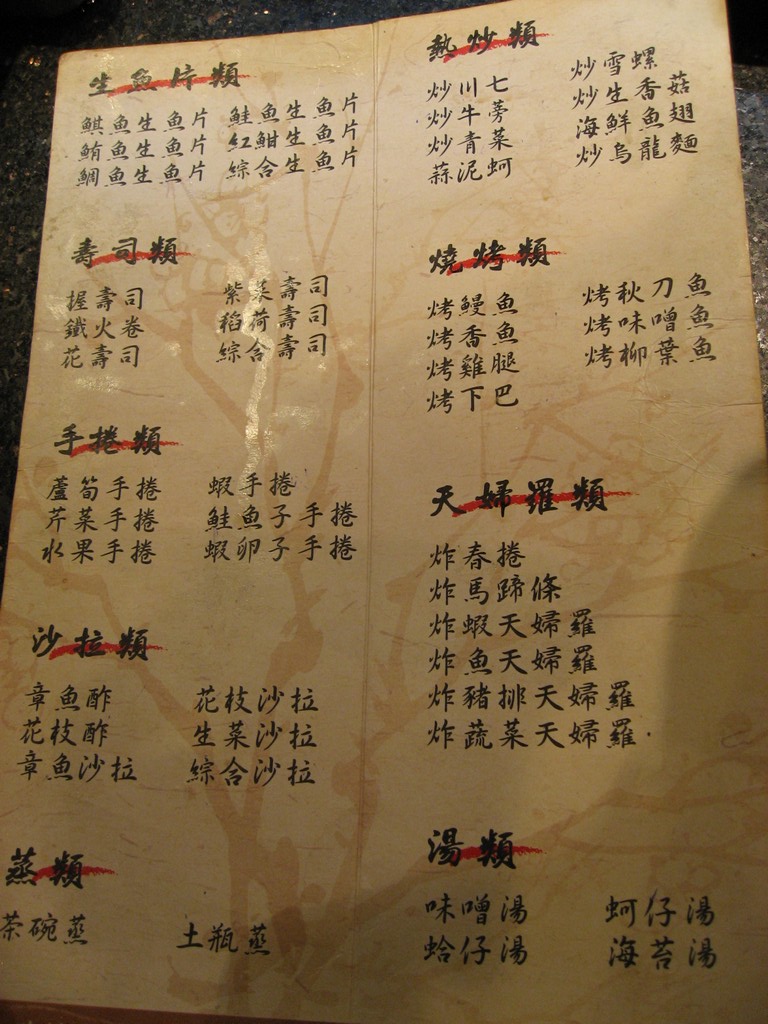 生魚片類
鯕魚生魚片
鮭魚生魚片
鮪魚生魚片
紅魽生魚片
鯛魚生魚片
綜合生魚片
壽司類
握壽司
紫菜壽司
鐵火卷
稻荷壽司
花壽司
綜合壽司
手捲類
蘆筍手捲
蝦手捲
芹菜手捲
鮭魚子手捲
水果手捲
蝦卵子手捲
沙拉類
章魚酢
花枝沙拉
花枝酢
生菜沙拉
章魚沙拉
綜合沙拉
蒸類
茶碗蒸
土瓶蒸
熱炒類
炒川七
炒雪螺
炒牛蒡
炒生香菇
炒青菜
海鮮魚翅
蒜泥蚵
炒烏龍麵
燒烤類
烤鰻魚
烤秋刀魚
烤香魚
烤味噌魚
烤雞腿
烤柳葉魚
烤下巴
天婦羅類
炸春捲
炸馬蹄條
炸蝦天婦羅
炸魚天婦羅
炸豬排天婦羅
炸蔬菜天婦羅.
湯類
味噌湯
蚵仔湯
蛤仔湯
海苔湯